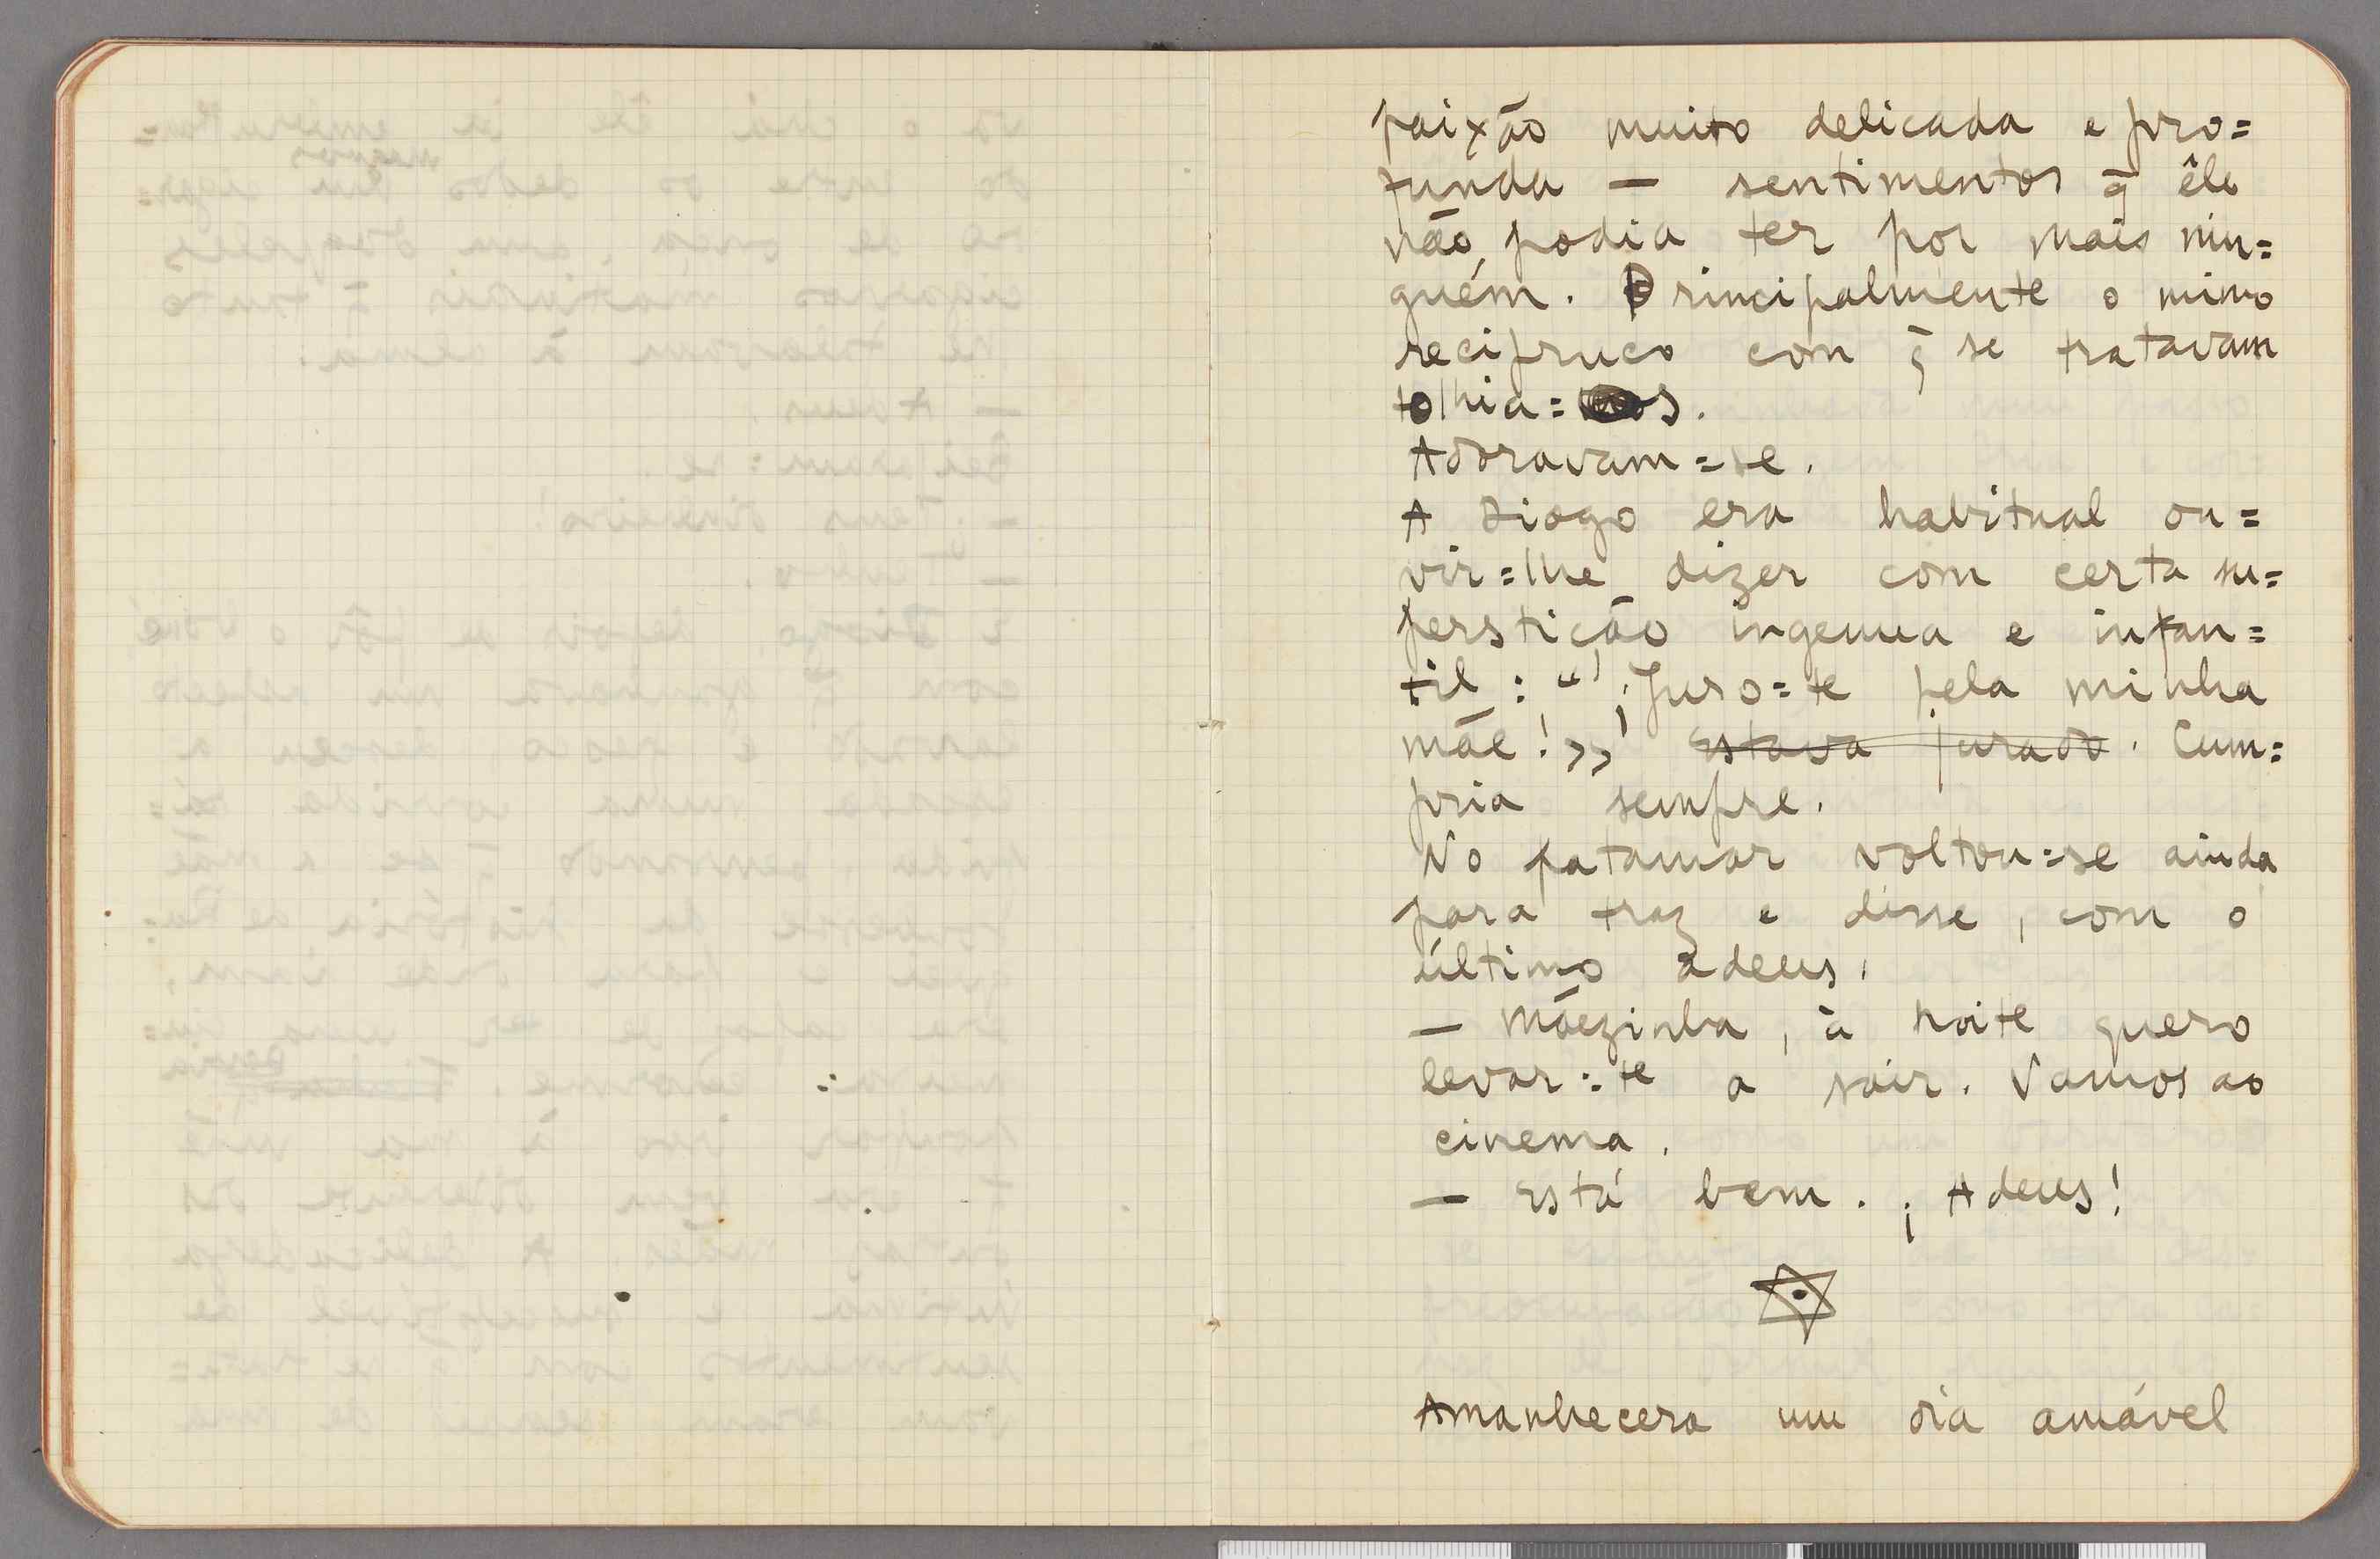 paixão muito delicada e pro=
funda — sentimentos q̄ êle
não podia ter por mais nin=
guém. Principalmente o mimo
recipruco com q̄ se tratavam
tolhia=os.
Adoravam=se.
A Diogo era habitual ou=
vir=lhe dizer com certa su=
perstição ingenua e infan=
til: “¡Juro=te pela minha
mãe!>> Estava jurado. Cum=
pria sempre.
No patamar voltou=se ainda
para traz e disse, com o
último adeus,
— Mãezinha, à noite quero
levar=te a sair. Vamos ao
cinema.
— Está bem. ¡Adeus!
Amanhecera um dia amável